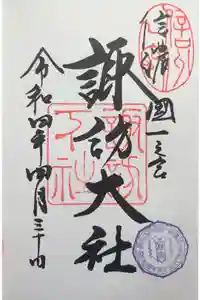 信濃國一之宮
諏訪大社
令和四年四月三十日